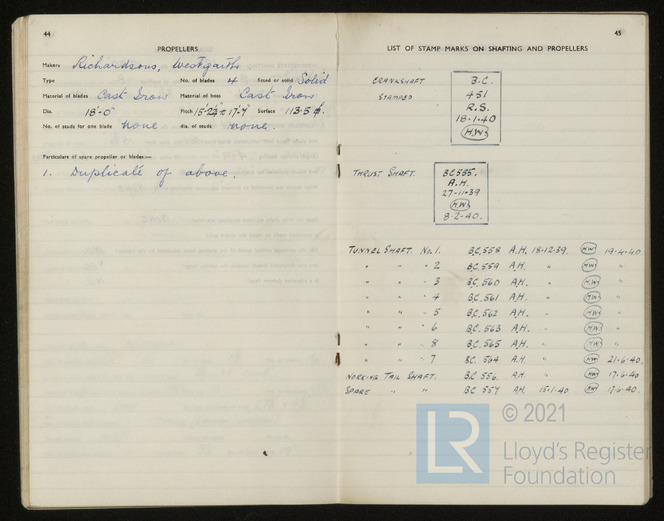 44
PROPELLERS
Makers Richardsons, Westgarth
Type No. of blades 4 fitted or solid Solid
Material of blades Cast Iron Material of boss Cast Iron
Dia. 18'-0" Pitch Surface 113.5
No. of studs for one blade none dia. of studs none.
Particulars of spare propeller or blades:—
1. Duplicate of above.
45
LIST OF STAMP MARKS ON SHAFTING AND PROPELLERS
CRANKSHAFT STAMPED
B.C.
451
R.S.
18·1·40
H.W.
THRUST SHAFT.
BC555.
A.H.
27-11-39
H.W.
8-2-40.
TUNNEL SHAFT. No. 1. B.C. 558 A.H. 18-12-39. HW 19-4-40
" " 2 B.C. 559 A.H. " HW "
" " 3 B.C. 560 A.H. " H.W. "
" " 4 B.C. 561 A.H. " H.W. "
" " 5 B.C. 562 A.H. " H.W. "
" " 6 B.C. 563 A.H. " H.W. "
" " 8 B.C. 565 A.H. " HW "
" " 7 BC. 564 A.H. " HW 21-6-40
WORKING TAIL SHAFT. B.C. 556. A.H. " HW 17-6-40
SPARE " " BC 557 A.H. 15-1-40 HW 17-6-40.
© 2021
LR
Lloyd's Register
Foundation